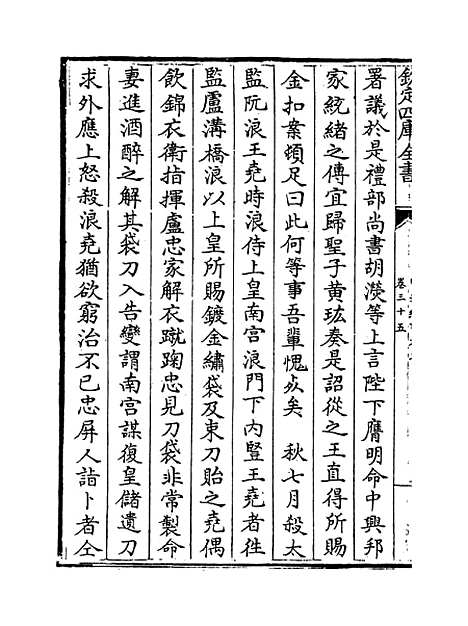 欽定四庫全書
卷三十五
署議於是禮部尚書胡濙等上言陛下膺明命中興邦
家統緒之傳宜歸聖子黃玹奏是詔從之王直得所賜
金扣案頓足曰此何等事吾輩愧死矣　秋七月殺太
監阮浪王堯時浪侍上皇南宫浪門下内豎王堯者徃
監盧溝橋浪以上皇所賜鍍金繡袋及束刀貽之堯偶
飲錦衣衛指揮盧忠家解衣蹴踘忠見刀袋非常製命
妻進酒醉之解其袋刀入告變謂南宫謀復皇儲遺刀
求外應上怒殺浪堯猶欲窮治不已忠屏人詣卜者仝